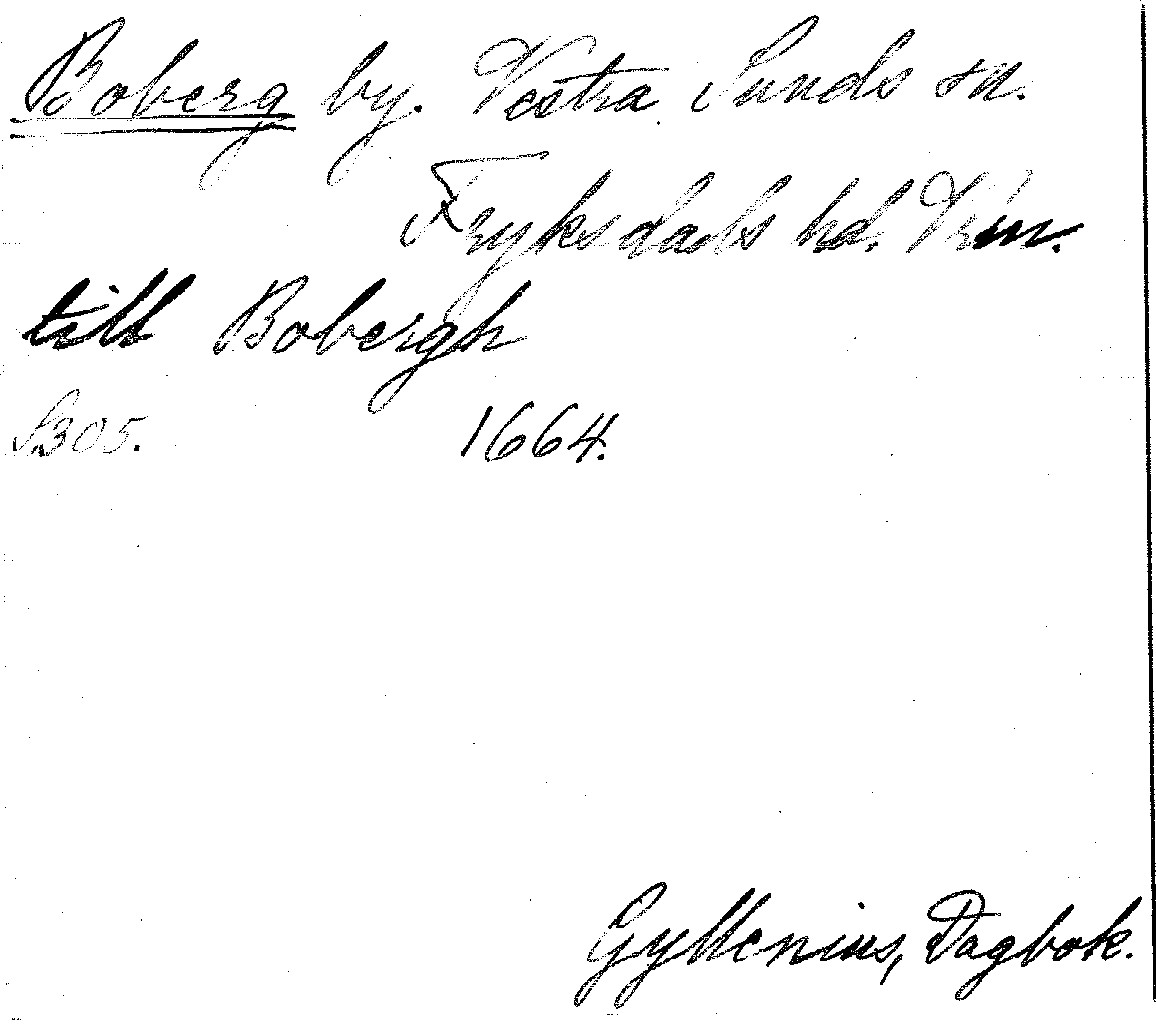 Boberg by. Vestra Sunds sn.
Fryksdals hd. Vrm.
till Bobergh
S. 305. 1664.
Gyllenius, Dagbok.